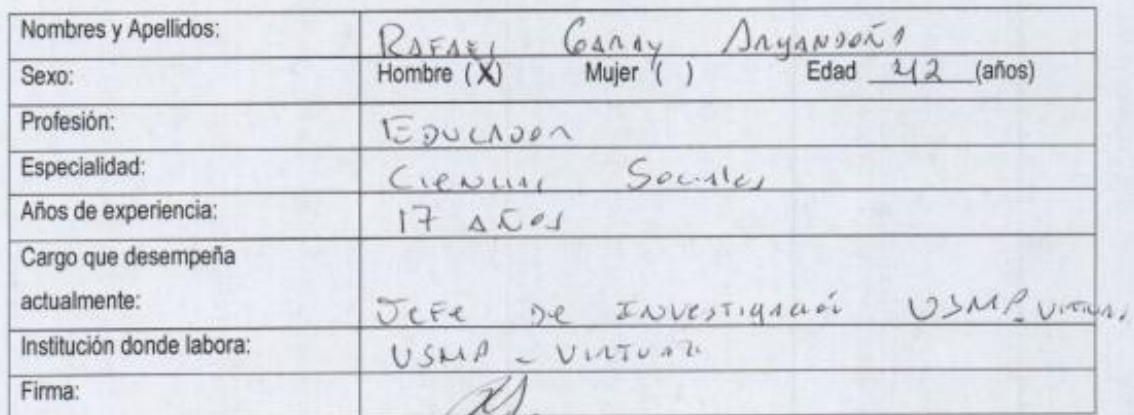 Nombres y Apellidos: RAFAEL GARAY ARGANDOÑA
Sexo: Hombre (X) Mujer ( ) Edad 42 (años)
Profesión: EDUCADOR
Especialidad: CIENCIAS SOCIALES
Años de experiencia: 17 AÑOS
Cargo que desempeña
actualmente: JEFE DE INVESTIGACIÓN USMP_VIRTUAL
Institución donde labora: USMP - VIRTUAL
Firma: